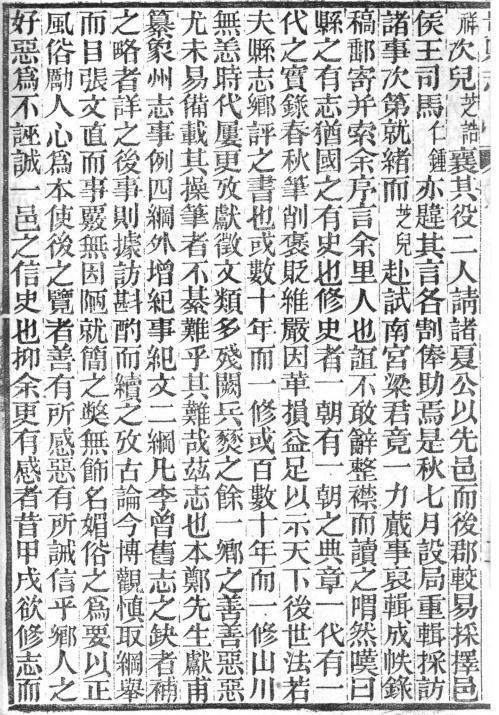 祥次兒芝誥襄其役二人請諸夏公以先邑而後郡較易採擇邑
侯王司馬仁鍾亦韙其言各割俸助焉是秋七月設局重輯採訪
諸事次第就緒而芝兒赴試南宮梁君竟一力蕆事裒輯成帙錄
稿郵寄并索余序言余里人也誼不敢辭整襟而讀之喟然嘆曰
縣之有志猶國之有史也修史者一朝有一朝之典章一代有一
代之實錄春秋筆削褒貶維嚴因革損益足以示天下後世法若
夫縣志鄉評之書也或數十年而一修或百數十年而一修山川
無恙時代屢更攷獻徵文類多殘闕兵燹之餘一鄉之善善惡惡
尤未易備載其操筆者不綦難乎其難哉玆志也本鄭先生獻甫
纂象州志事例四綱外增紀事紀文二綱凡李曾舊志之鈌者補
之略者詳之後事則據訪斟酌而續之攷古論今博觀慎取綱舉
而目張文直而事覈無因陋就簡之獘無飾名媚俗之為要以正
風俗勵人心為本使後之覽者善有所感惡有所誡信乎鄉人之
好惡為不誣誠一邑之信史也抑余更有感者昔甲戌欲修志而